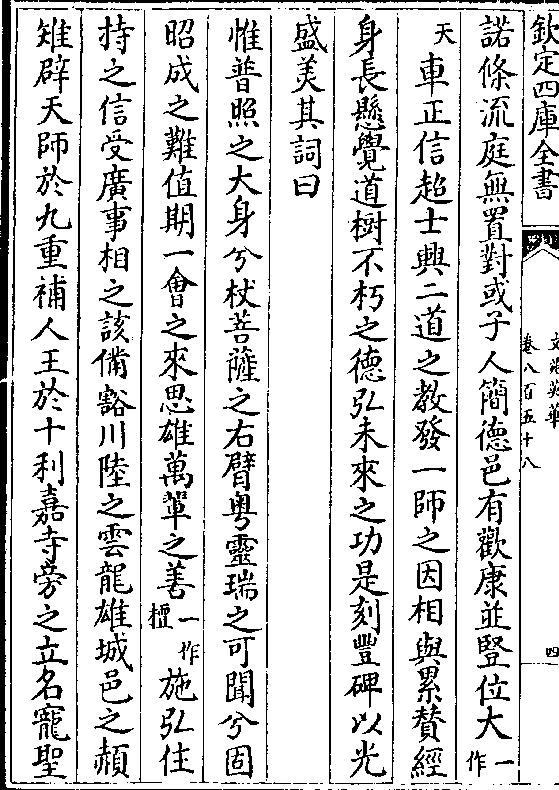 欽定四庫全書
文苑英華
卷八百五十八
四
諾條流庭無置對或子人簡德邑有歡康並豎位大一作
天車正信超士興二道之教發一師之因相與累賛經
身長懸覺道樹不朽之德弘未來之功是刻豐碑以光
盛美其詞曰
惟普照之大身兮杖菩薩之右臂粤靈瑞之可聞兮固
昭成之難值期一㑹之來思雄萬軰之善一作檀施弘住
持之信受廣事相之該備豁川陸之雲龍雄城邑之頳
雉辟天師於九重補人王於十利嘉寺旁之立名寵聖